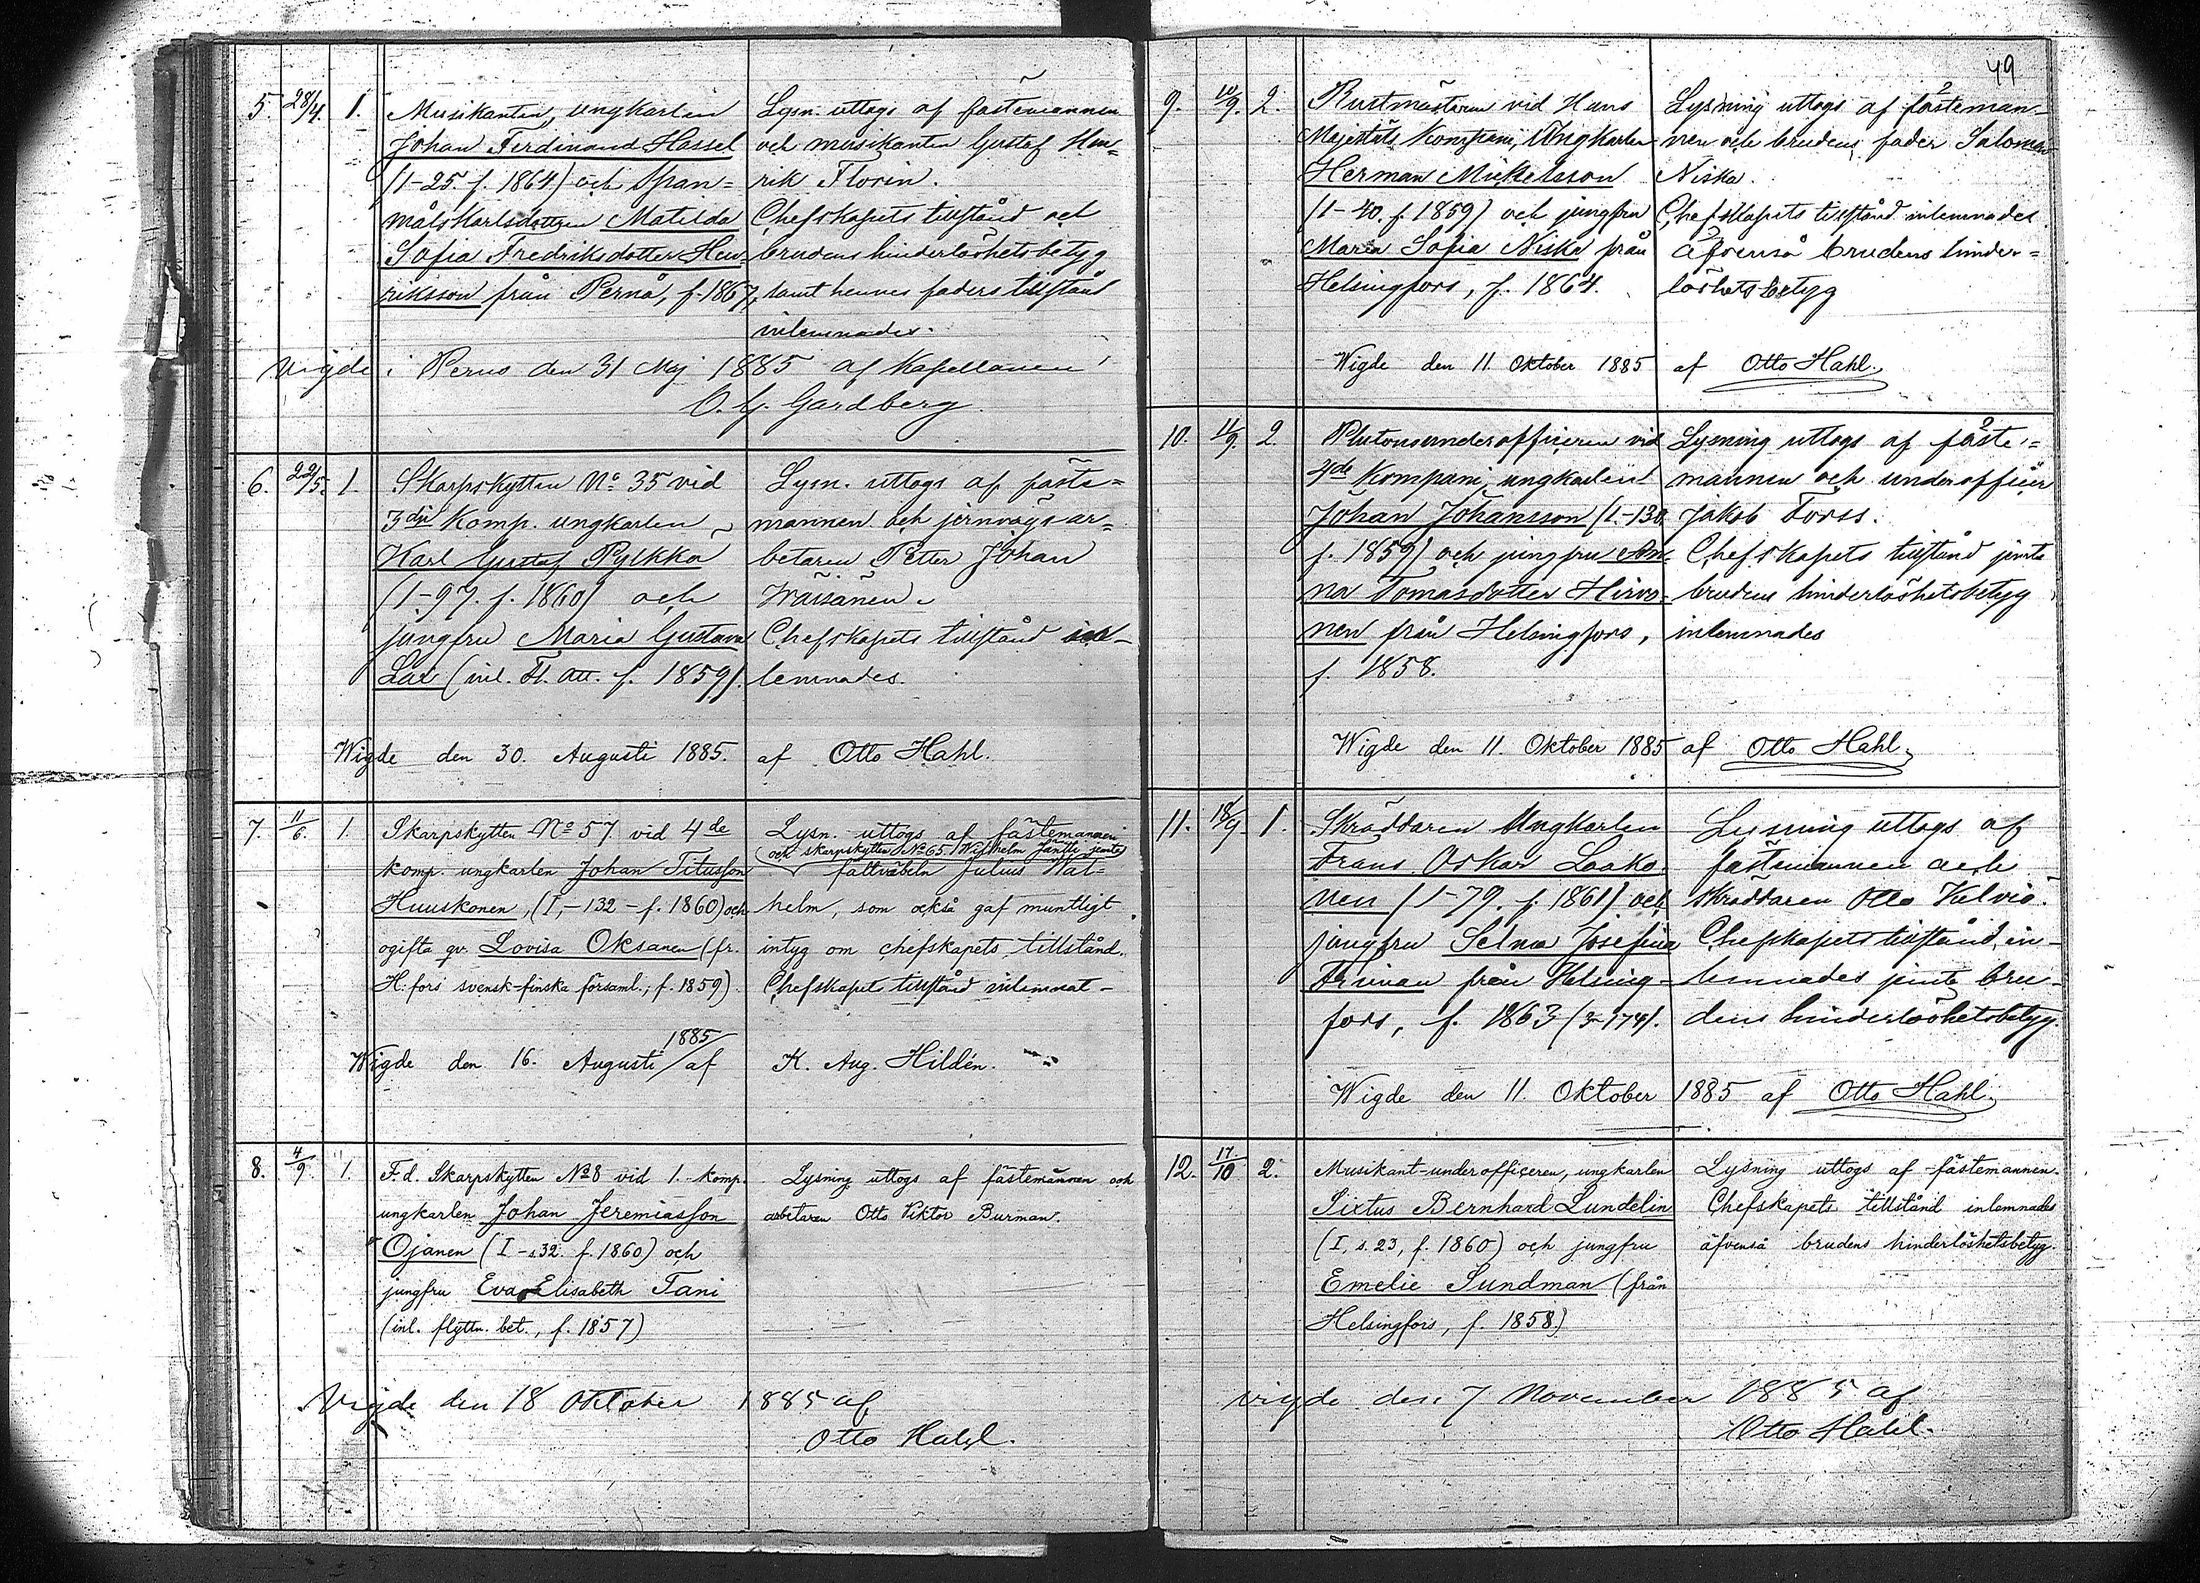 5. 28/4. 1. Musikanten, ungkarlen
Johan Ferdinand Hassel
(1-25. f. 1864) och Span=
målskarlsdottren Matilda
Sofia Fredriksdotter Hen-
riksson från Pernå, f. 1867,
Lysn. uttogs af fästemannen
och musikanten Gustaf Hen=
rik Florin.
Chefskapets tillstånd och
brudens hinderlöshetsbetyg
samt hennes faders tillstånd
inlemnades.
Vigde i Perno den 31 Maj 1885 af Kapellanen
O. G. Gardberg.
6. 22/5. 1. Skarpskytten No 35 vid
3dje Komp. ungkarlen
Karl Gustaf Pylkkä
(1-97. f. 1860) och
jungfru Maria Gustava
Lax (inl. Fl. Att. f. 1859).
Lysn. uttogs af fäste=
mannen och jernvägsar=
betaren Petter Johan
Wäisänen.
Chefskapets tillstånd in-
lemnades.
Wigde den 30. Augusti 1885. af Otto Hahl.
7. 11/6. 1. Skarpskytten No 57 vid 4de
komp. ungkarlen Johan Titusson
Huuskonen, (I,-132-f. 1860) och
ogifta qv. Lovisa Oksanen (fr.
H:fors svensk-finska församl., f. 1859).
Lysn. uttogs af fästemannen
(och skarpskytten No 65 Wilhelm Jäntti jemte)
fältväbeln Julius Wal=
helm, som också gaf muntligt
intyg om chefskapets tillstånd.
Chefskapets tillstånd inlemnat-
Wigde den 16. Augusti 1885/af K. Aug. Hildén.
8. 4/9. 1. F.d. Skarpskytten No 8 vid 1. komp.
ungkarlen Johan Jeremiasson
Ojanen (I-s32. f. 1860) och
jungfru Eva Elisabeth Tani
(inl. flyttn. bet., f. 1857)
Lysning uttogs af fästemannen och
arbetaren Otto Viktor Burman.
Vigde den 18 Oktober 1885 af
Otto Hahl.
49
9. 10/9. 2. Rustmästaren vid Hans
Majestäts Kompani, Ungkarlen
Herman Mickelsson
(1-40. f. 1859) och jungfru
Maria Sofia Niska från
Helsingfors, f. 1864.
Lysning uttogs af fästeman-
nen och brudens fader Salomon
Niska.
Chefskapets tillstånd inlemnades
äfvenså brudens hinder=
löshetsbetyg
Wigde den 11 Oktober 1885 af Otto Hahl.
10. 11/9. 2. Plutonsunderofficeren vid
4de Kompani, ungkarlen
Johan Johansson (1.-130.
f. 1859) och jungfru An-
na Tomasdotter Hirvo-
nen från Helsingfors,
f. 1858.
Lysning uttogs af fäste=
mannen och underofficer
Jakob Forss.
Chefskapets tillstånd jemte
brudens hinderlöshetsbetyg
inlemnades
Wigde den 11. Oktober 1885 af Otto Hahl.
11. 18/9 1. Skräddaren Ungkarlen
Frans Oskar Laako-
nen (1-79. f. 1861) och
jungfru Selma Josefina
från Helsing-
fors, f. 1863 (3-174).
Lysning uttogs af
fästemannen och
skräddaren Otto Kelviö.
Chefskapets tillstånd in-
lemnades jemte bru-
dens hinderlöshetsbetyg.
Wigde den 11. Oktober 1885 af Otto Hahl.
12. 17/10 2. Musikant-underofficeren, ungkarlen
Sixtus Bernhard Lundelin
(I, s. 23, f. 1860) och jungfru
Emelie Sundman (från
Helsingfors, f. 1858.)
Lysning uttogs af fästemannen.
Chefskapets tillstånd inlemnades
äfvenså brudens hinderlöshetsbetyg.
Vigde den 7 November 1885 af
Otto Hahl.